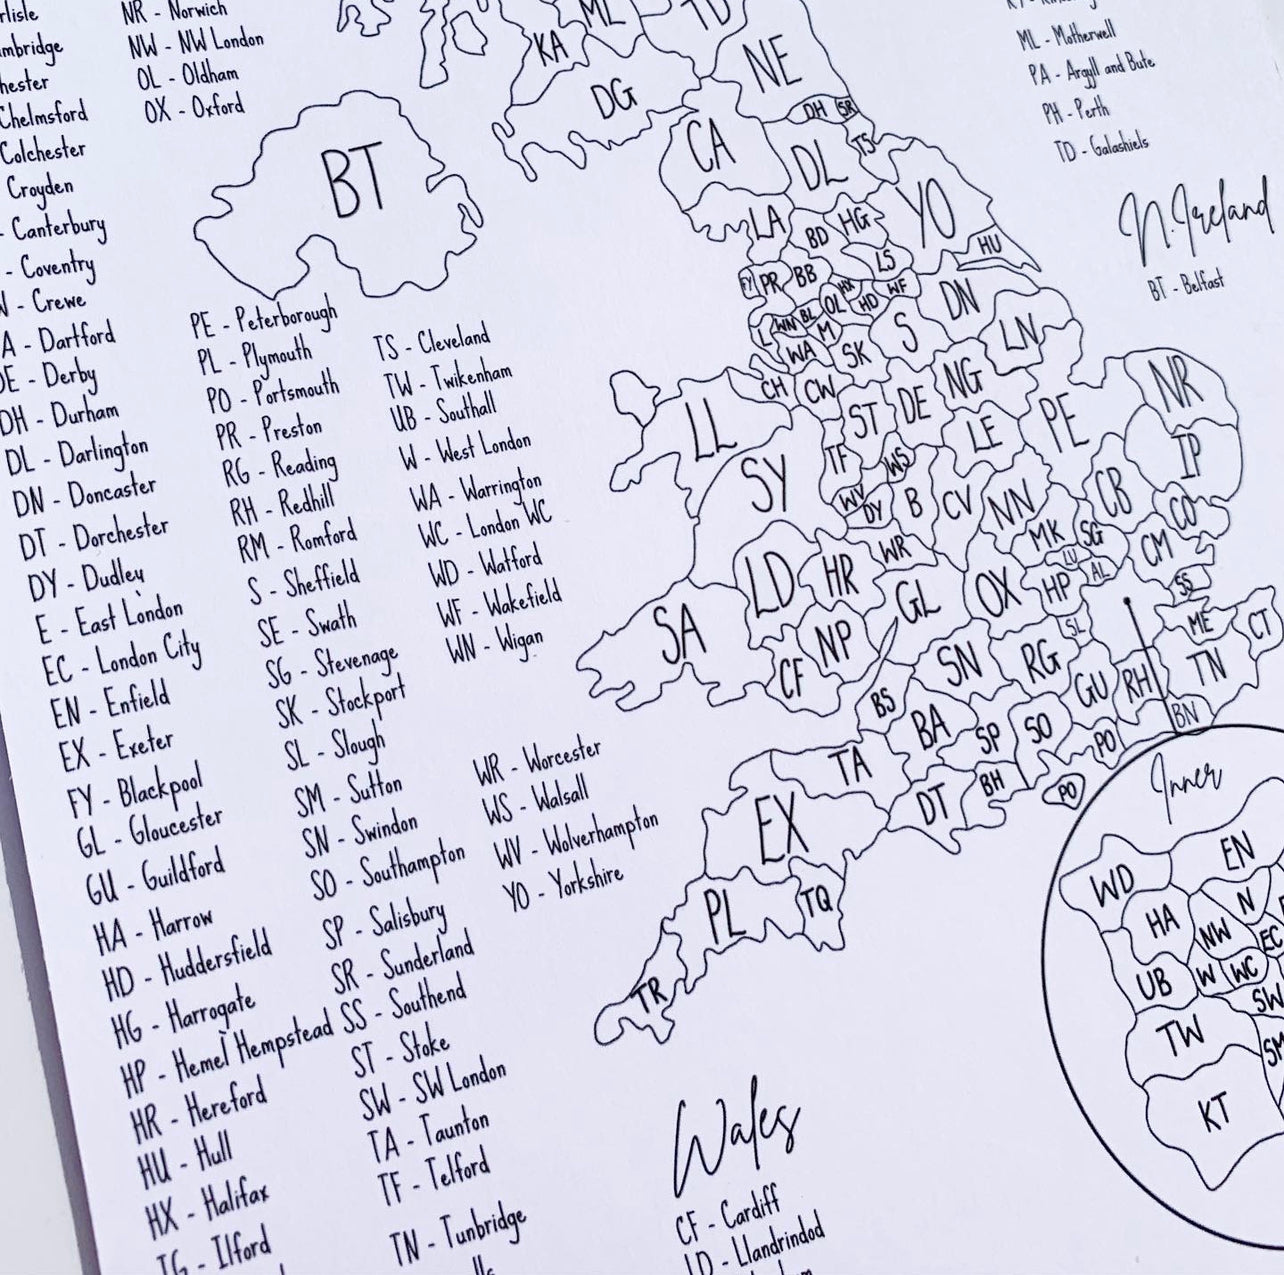 rlisle
mbridge
hester
Chelmsford
Colchester
Croyden
- Canterbury
- Coventry
- Crewe
A - Dartford
DE - Derby
DH - Durham
DL - Darlington
DN - Doncaster
DT - Dorchester
DY - Dudley
E - East London
EC - London City
EN - Enfield
EX - Exeter
FY - Blackpool
GL - Gloucester
GU - Guildford
HA - Harrow
HD - Huddersfield
HG - Harrogate
HP - Hemel Hempstead
HR - Hereford
HU - Hull
HX - Halifax
IG - Ilford
NR - Norwich
NW - NW London
OL - Oldham
OX - Oxford
PE - Peterborough
PL - Plymouth
PO - Portsmouth
PR - Preston
RG - Reading
RH - Redhill
RM - Romford
S - Sheffield
SE - Swath
SG - Stevenage
SK - Stockport
SL - Slough
SM - Sutton
SN - Swindon
SO - Southampton
SP - Salisbury
SR - Sunderland
SS - Southend
ST - Stoke
SW - SW London
TA - Taunton
TF - Telford
TN - Tunbridge
lls
TS - Cleveland
TW - Twikenham
UB - Southall
W - West London
WA - Warrington
WC - London WC
WD - Watford
WF - Wakefield
WN - Wigan
WR - Worcester
WS - Walsall
WV - Wolverhampton
YO - Yorkshire
ML - Motherwell
PA - Argyll and Bute
PH - Perth
TD - Galashiels
N.Ireland
BT - Belfast
Wales
CF - Cardiff
LD - Llandrindod
BT
KA
ML
TD
DG
NE
CA
DH
SR
DL
TS
LA
BD
HG
YO
HU
LS
FY
PR
BB
HX
WF
HD
OL
BL
WN
L
M
WA
SK
S
DN
LN
CH
CW
LL
ST
DE
NG
NR
LE
PE
IP
SY
TF
WS
WV
DY
B
CV
NN
CB
CO
MK
SG
CM
LU
AL
LD
HR
WR
GL
OX
HP
SS
SA
NP
CF
SL
ME
CT
SN
RG
GU
RH
TN
BS
BA
SP
SO
PO
BN
TA
BH
DT
PO
EX
PL
TQ
TR
Inner
WD
EN
HA
N
NW
EC
UB
W
WC
SW
TW
SM
KT